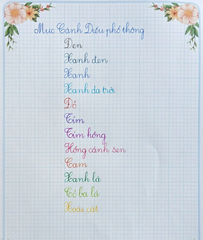 Mực Cánh Diều phổ thông
Đen
Xanh đen
Xanh
Xanh da trời
Đỏ
Tím
Tím hồng
Hồng cánh sen
Cam
Xanh lá
Cỏ ba lá
Xoài cát